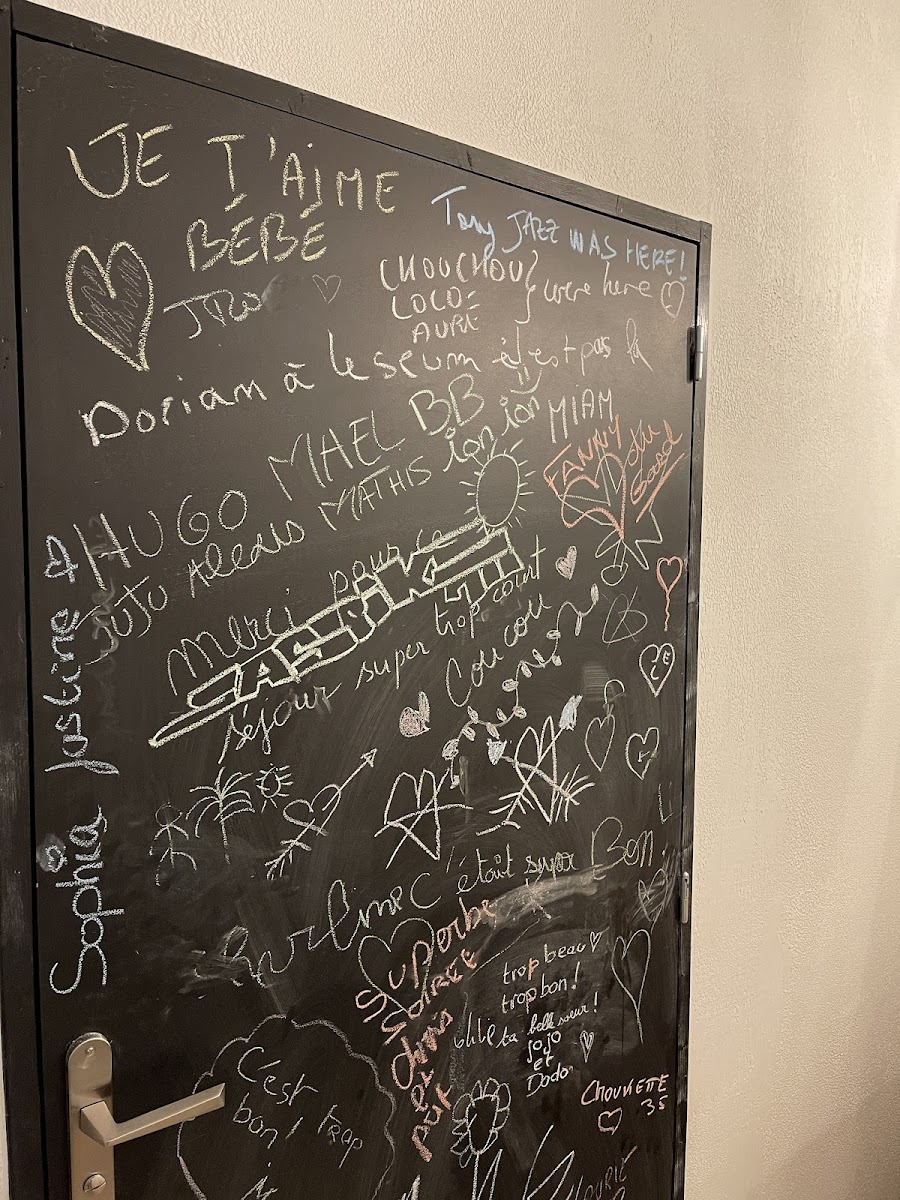 JE T'AIME
BÉBÉ
Tony JAZZ WAS HERE!
CHOUCHOU
LOCO-
AURE
were here
Dorian à le seum il est pas là
HUGO MAEL BB
JUJU Alexis MATHIS ion ion
MIAM
FANNY
du
Good
Merci pour ce
séjour super trop court
Coucou
Sophia Justine
C'était super Bon
Superbe
SOIRÉE
Chris
et
trop beau
trop bon!
ta belle soeur!
Jojo
et
Dodo
CHOUKETTE
35
C'est trop
bon!